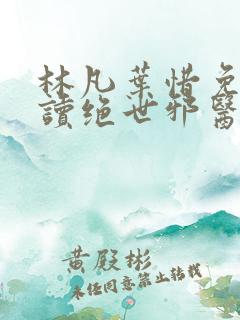 林凡葉惜免
讀绝世邪醫
黄殿彬
未经同意禁止转载